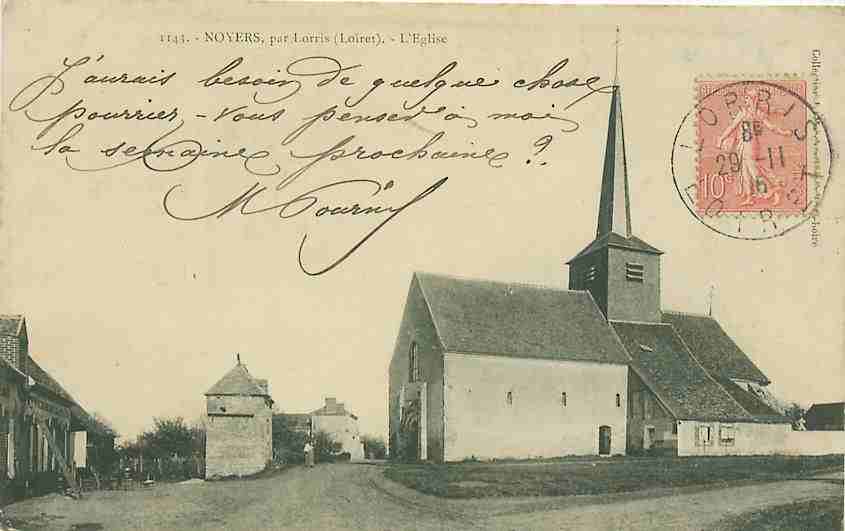 1143. - NOYERS, par Lorris (Loiret). - L'Eglise
J'aurais besoin de quelque chose
pourriez-vous penser à moi
la semaine prochaine ?
LORRIS
8E
29 -11
LOIRET
10c